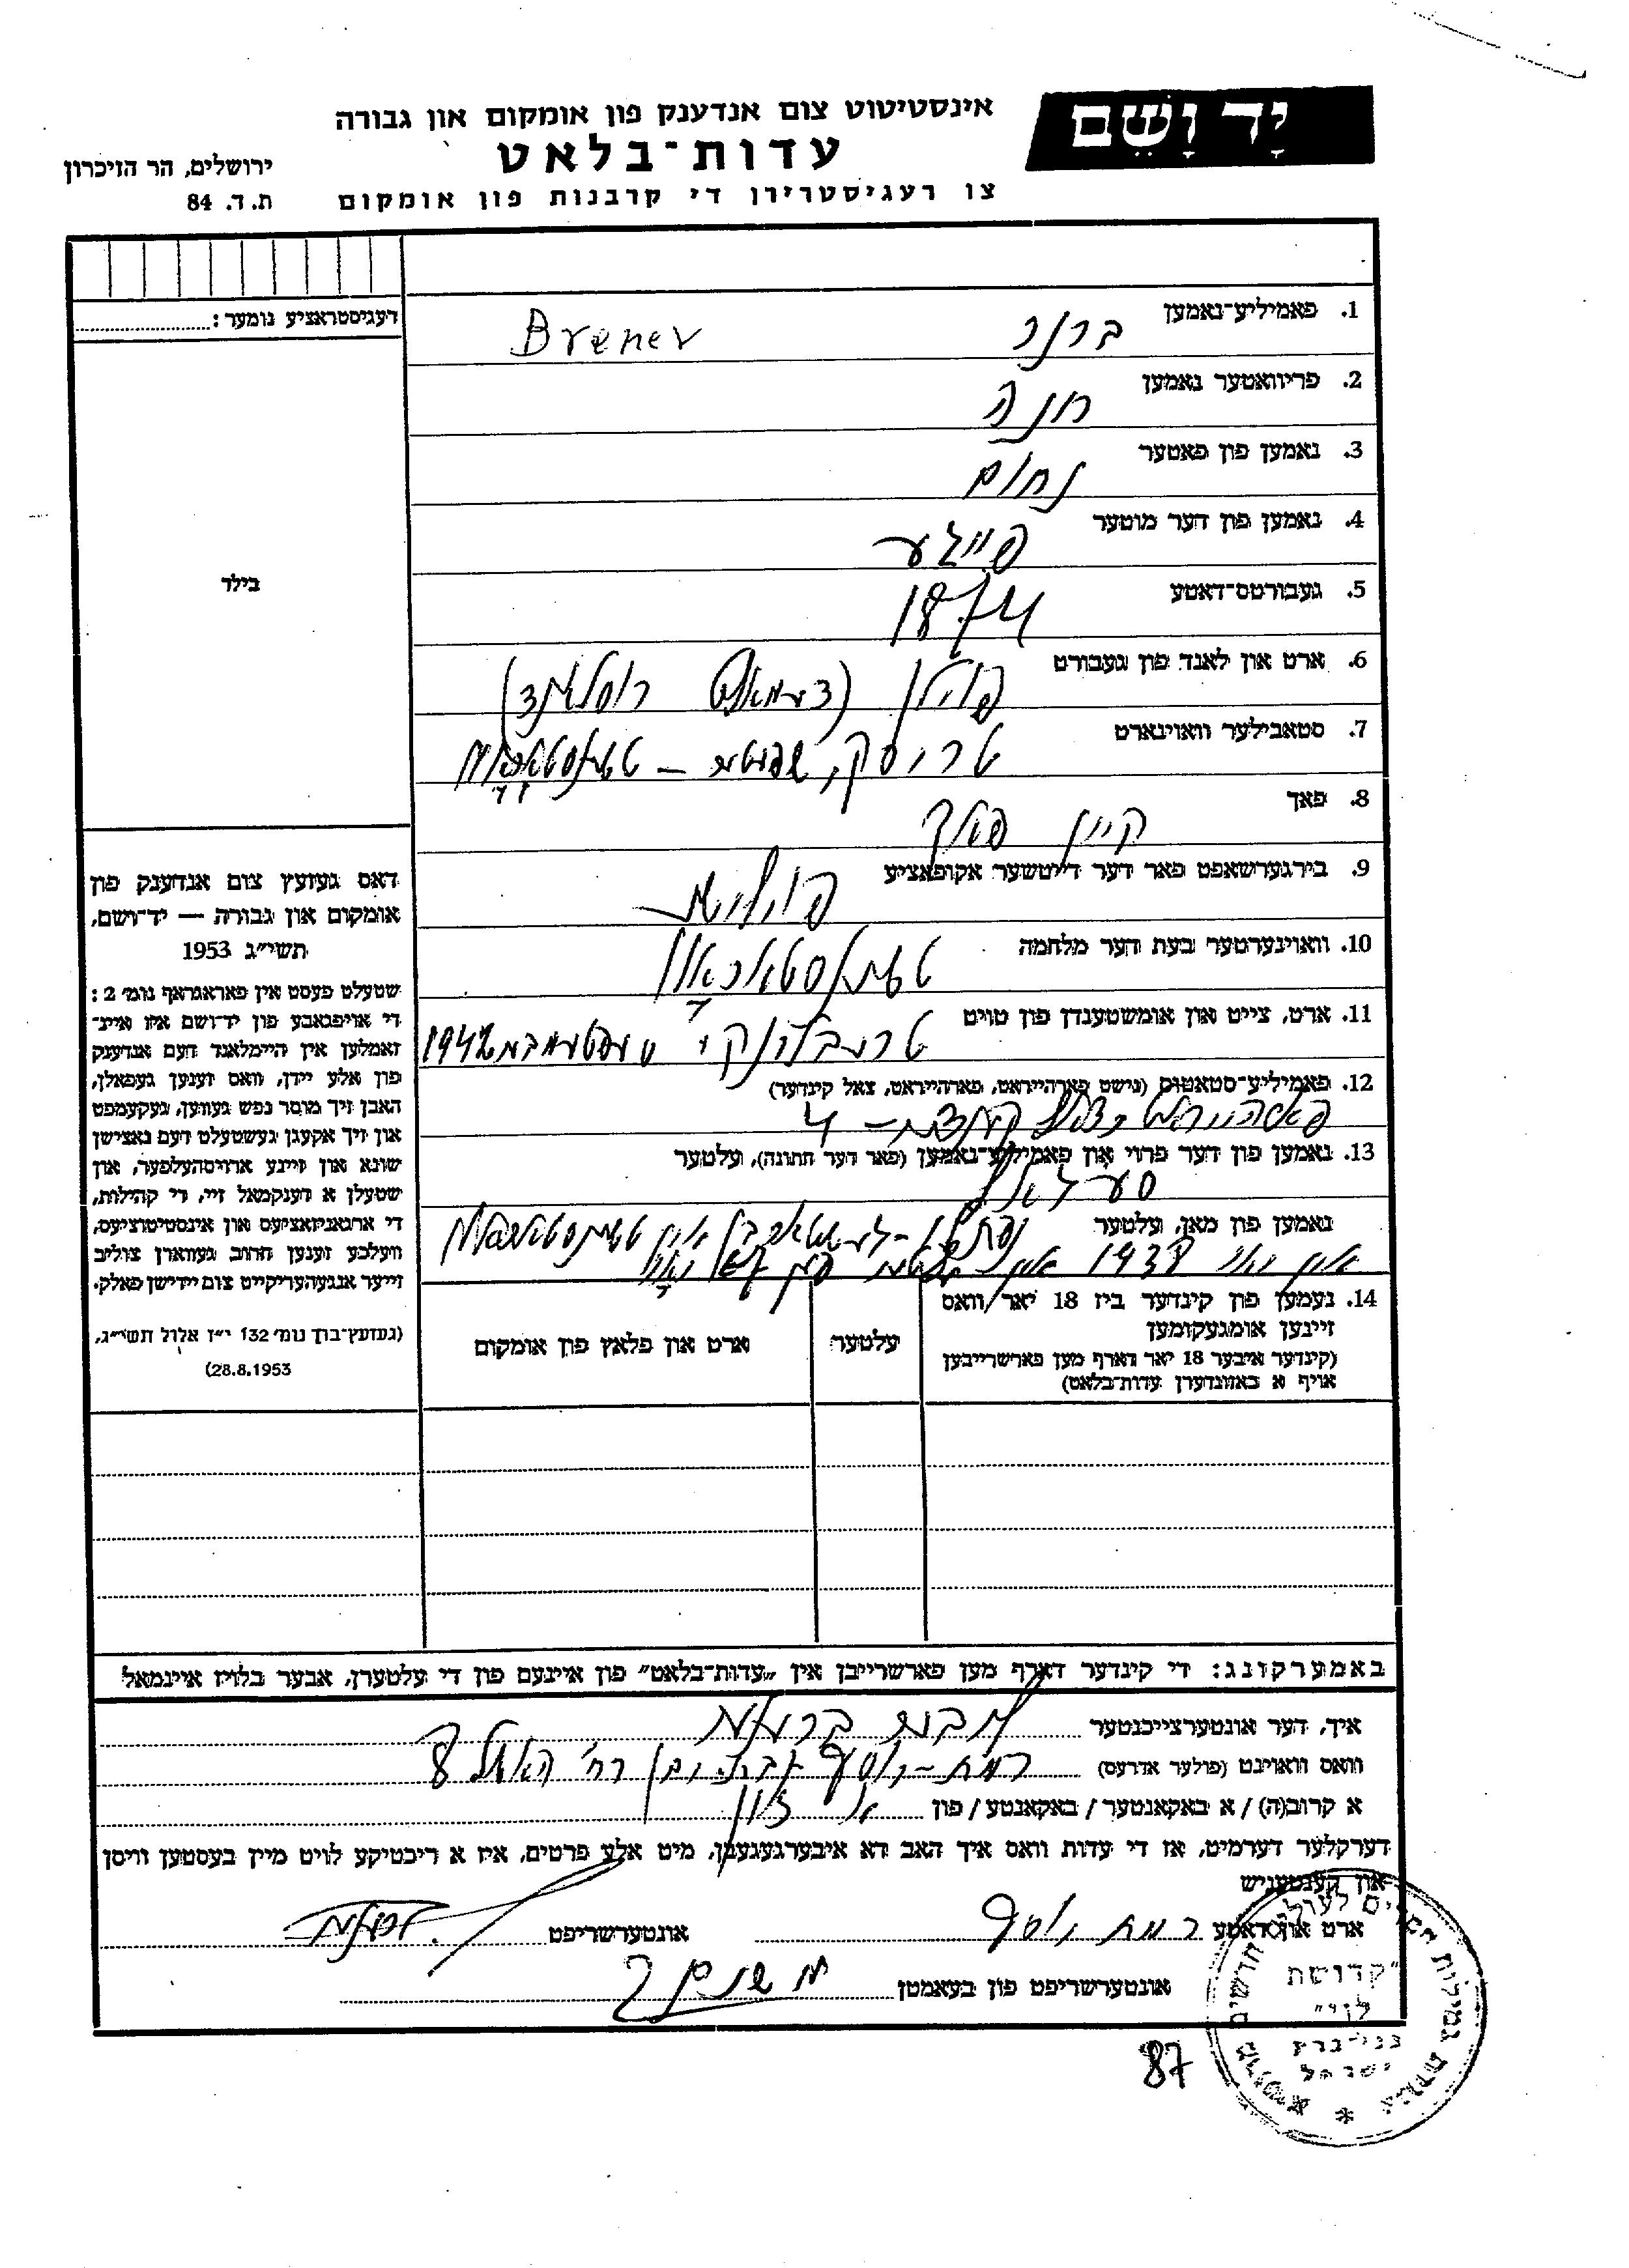 יָד וָשֵׁם
אינסטיטוט צום אנדענק פון אומקום און גבורה
עדות-בלאט
צו רעגיסטרירן די קרבנות פון אומקום
ירושלים, הר הזיכרון
ת. ד. 84
רעגיסטראציע נומער:
1. פאמיליע-נאמען ברנר Brener
2. פריוואטער נאמען חנה
3. נאמען פון פאטער נחום
4. נאמען פון דער מוטער פיילע
5. געבורטס-דאטע 1874
6. ארט און לאנד פון געבורט פוילן (דעמאלט רוסלאנד)
7. סטאבילער וואוינארט
8. פאך קיין פאך
9. בירגערשאפט פאר דער דייטשער אקופאציע פויליש
10. וואוינערטער בעת דער מלחמה טשענסטאכאוו
11. ארט, צייט און אומשטענדן פון טויט טרעבלינקי סעפטעמבער 1942
12. פאמיליע-סטאטוס (נישט פארהייראט, פארהייראט, צאל קינדער)
פארהייראט צאל קינדער – 4
13. נאמען פון דער פרוי און פאמיליע-נאמען (פאר דער חתונה), עלטער
נאמען פון מאן, עלטער
אין יאר 193
14. נעמען פון קינדער ביז 18 יאר וואס
זיינען אומגעקומען
(קינדער איבער 18 יאר דארף מען פארשרייבן
אויף א באזונדערן עדות-בלאט)
עלטער
ארט און פלאץ פון אומקום
בילד
דאס געזעץ צום אנדענק פון
אומקום און גבורה — יד-ושם,
תשי״ג 1953
שטעלט פעסט אין פאראגראף נומ׳ 2:
די אויפגאבע פון יד-ושם איז איינ-
זאמלען אין היימלאנד דעם אנדענק
פון אלע יידן, וואס זענען געפאלן,
האבן זיך מוסר נפש געווען, געקעמפט
און זיך אקעגן געשטעלט דעם נאצישן
שונא און זיינע ארויסהעלפער, און
שטעלן א דענקמאל זיי, די קהילות,
די ארגאניזאציעס און אינסטיטוציעס,
וועלכע זענען חרוב געווארן צוליב
זייער אנגעהעריקייט צום יידישן פאלק.
(געזעץ-בוך נומ׳ 132 י״ז אלול תשי״ג,
28.8.1953)
באמערקונג: די קינדער דארף מען פארשרייבן אין „עדות-בלאט״ פון איינעם פון די עלטערן, אבער בלויז איינמאל
איך, דער אונטערצייכנטער ברענער
וואס וואוינט (פולער אדרעס) רמת-יוסף
א קרוב(ה) / א באקאנטער / באקאנטע / פון א זון
דערקלער דערמיט, אז די עדות וואס איך האב דא איבערגעגעבן, מיט אלע פרטים, איז א ריכטיקע לויט מיין בעסטען וויסן
און קענטעניש
ארט און דאטע רמת יוסף אונטערשריפט
אונטערשריפט פון בעאמטן
״קדושת
לוי״
בני-ברק
ישראל
87